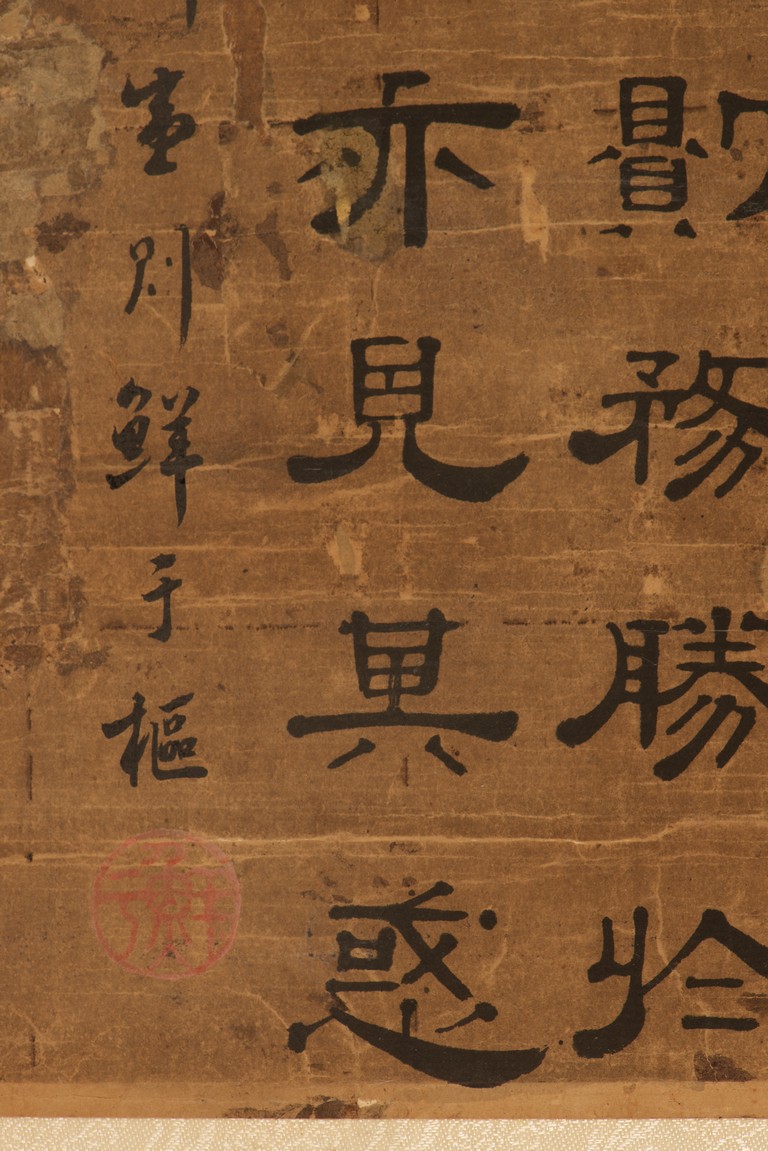 務勝於
亦見其惑
則鮮于樞
鮮于